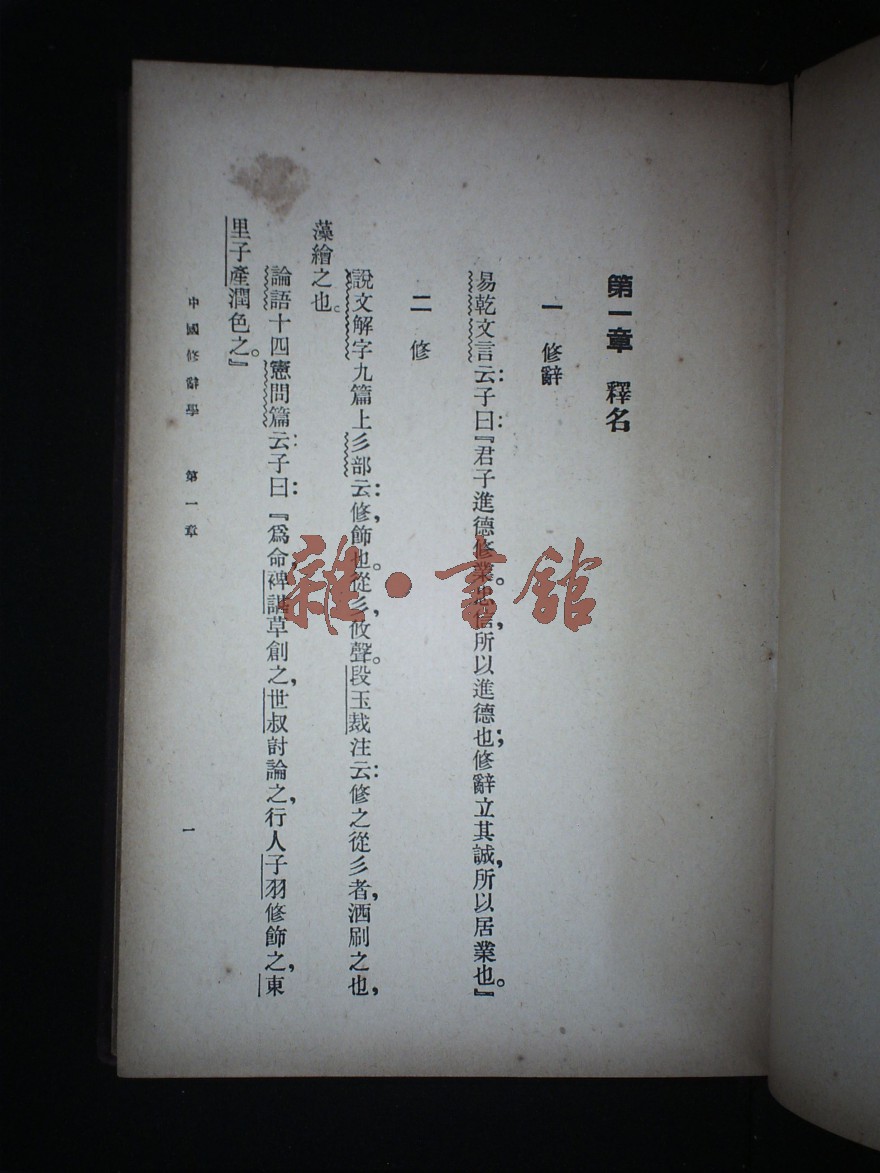 第一章 釋名
一 修辭
易乾文言云:子曰:『君子進德修業。忠信,所以進德也;修辭立其誠,所以居業也。』
二 修
說文解字九篇上彡部云:修,飾也。從彡,攸聲。段玉裁注云:修之從彡者,洒刷之也,
藻繪之也。
論語十四憲問篇云:子曰:『爲命裨諶草創之,世叔討論之,行人子羽修飾之,東
里子產潤色之。』
中國修辭學 第一章
一
雜·書館